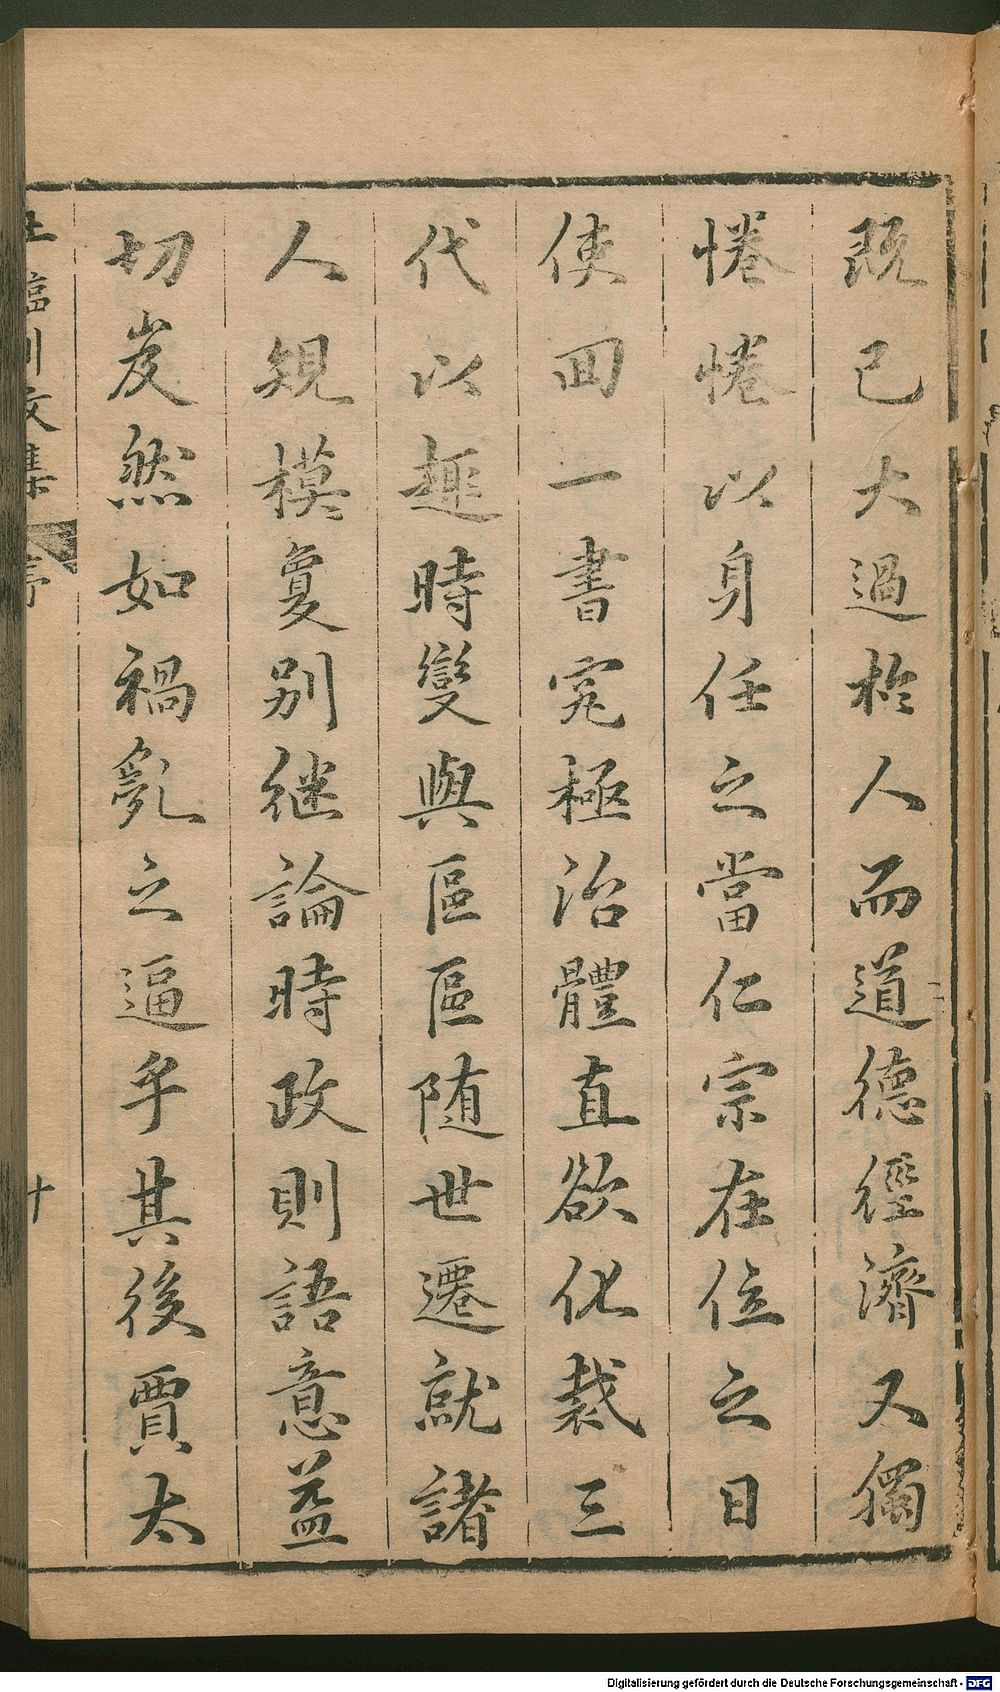 既已大過於人而道德經濟又獨
惓惓以身任之當仁宗在位之日
使回一書究極治體直欲化裁三
代以趣時變與區區随世遷就諸
人規模夐別継論時政則語意益
切岌然如禍亂之逼乎其後賈太
臨川文集 序 十
Digitalisierung gefördert durch die Deutsche Forschungsgemeinschaft - DFG